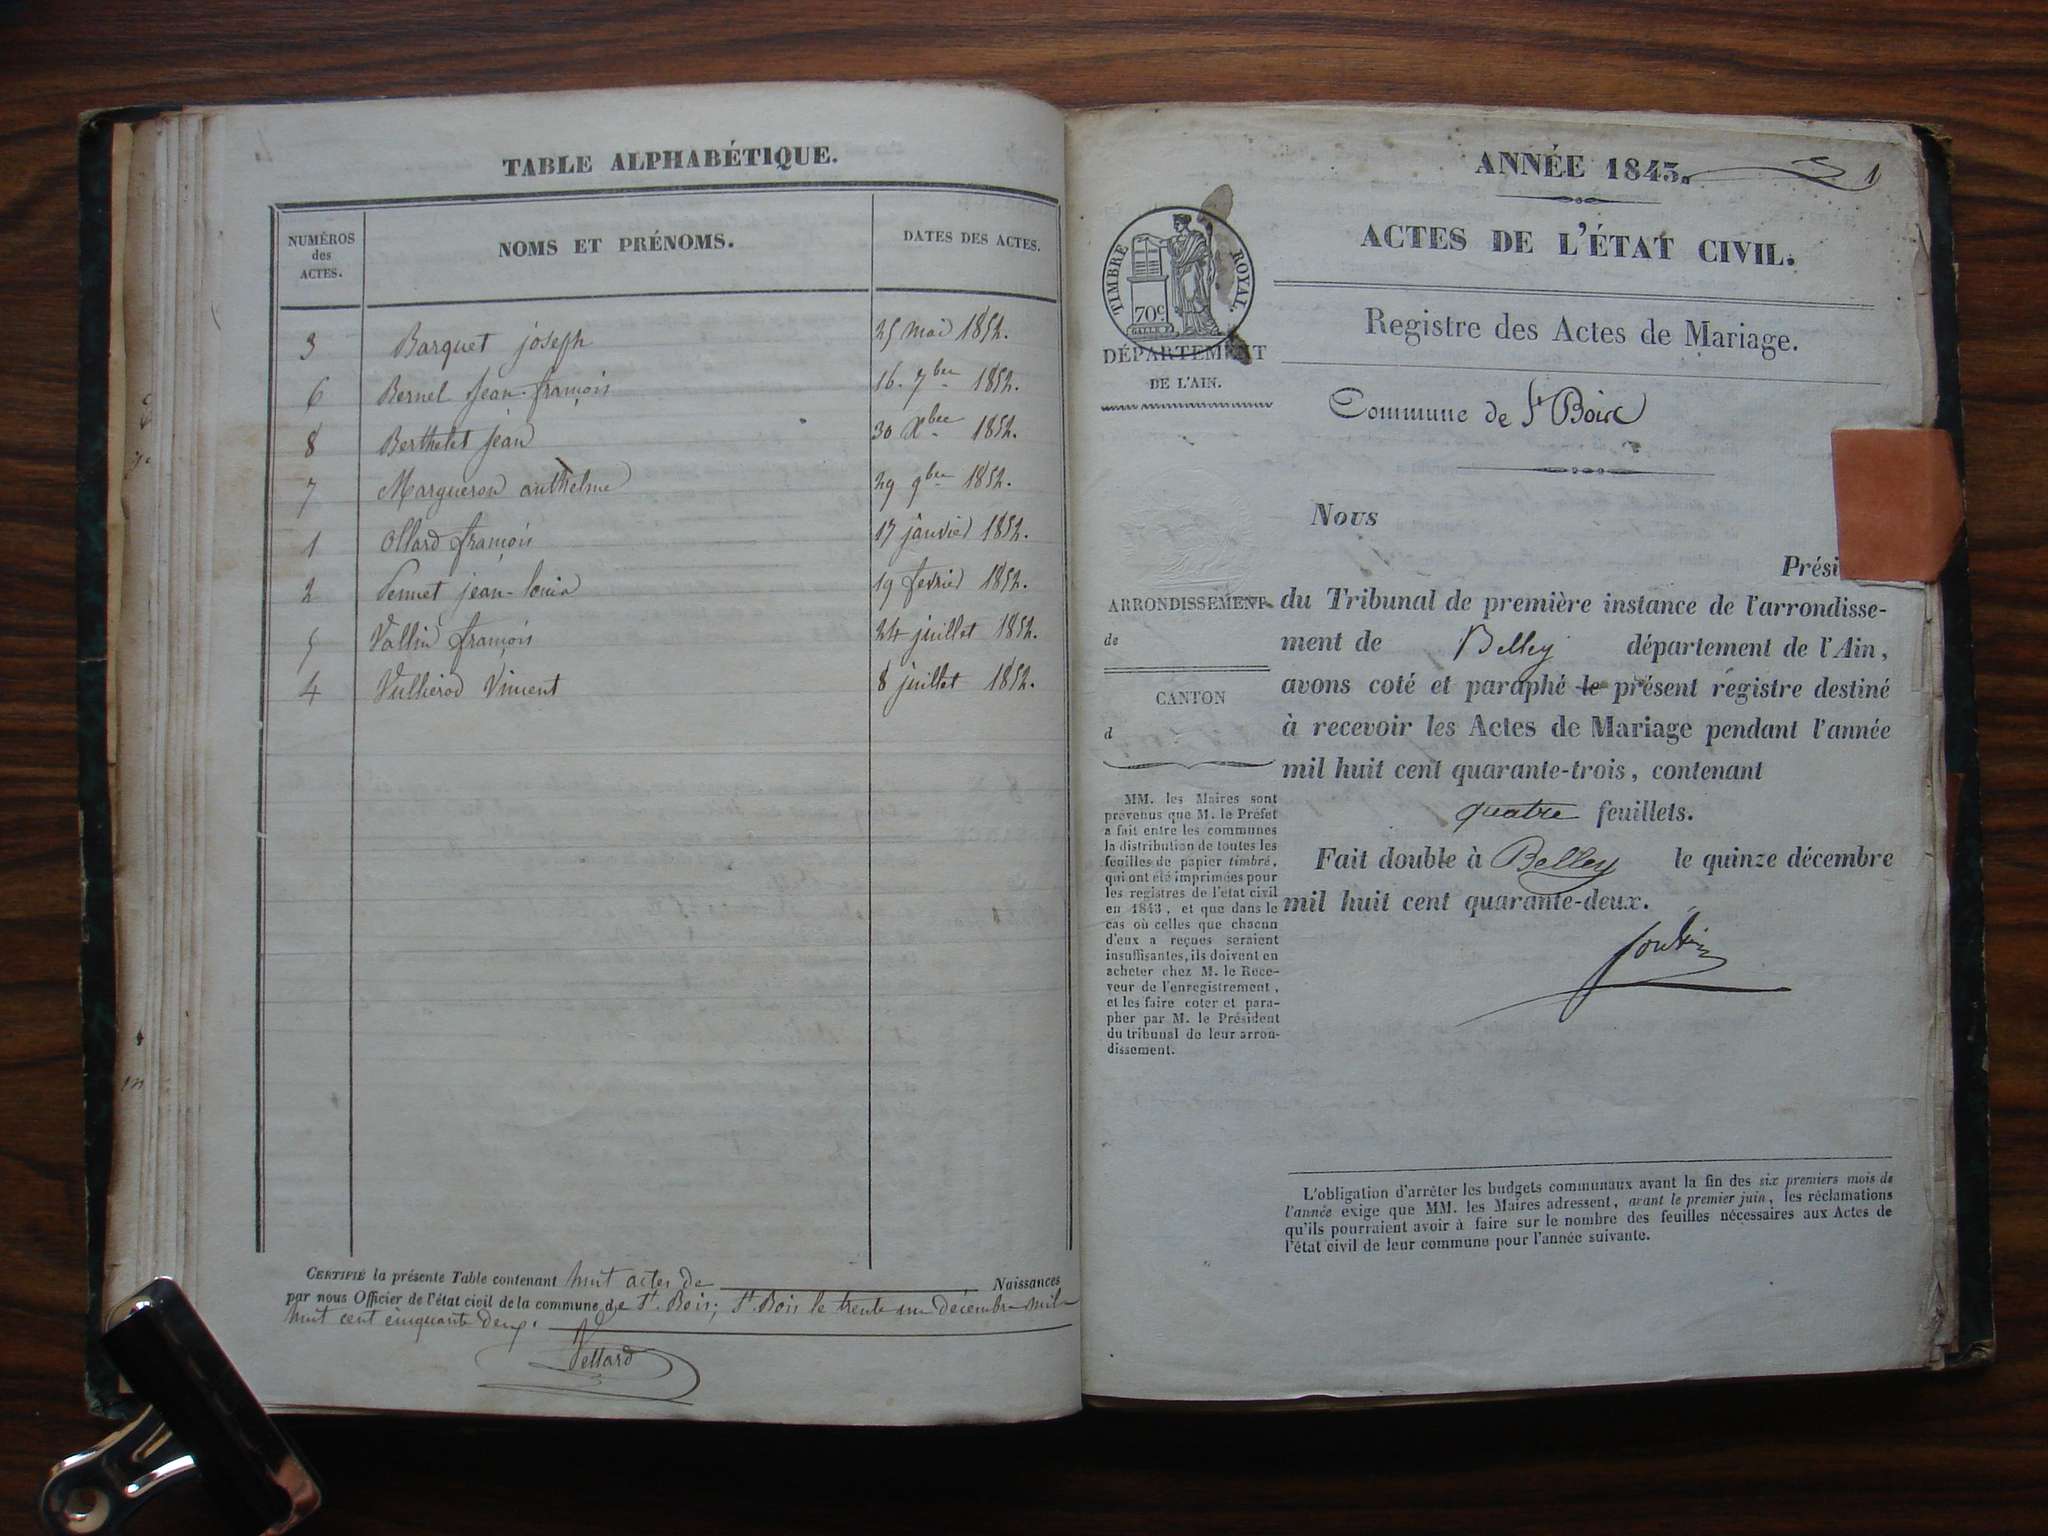 TABLE ALPHABÉTIQUE.
NUMÉROS
des
ACTES.
NOMS ET PRÉNOMS.
DATES DES ACTES.
3 Barquet joseph 25 mai 1852.
6 Bernel Jean-françois 16. 7bre 1852.
8 Berthelet jean 30 Xbre 1852.
7 Margueron anthelme 29 9bre 1852.
1 Ollard françois 17 janvier 1852.
2 jean-louis 19 fevrier 1852.
5 Vallin françois 24 juillet 1852.
4 Vullierod Vincent 8 juillet 1852.
CERTIFIÉ la présente Table contenant huit actes de Naissances
par nous Officier de l'état civil de la commune de St. Bois; St. Bois le trente un décembre mil
huit cent cinquante deux.
ANNÉE 1843. 1
ACTES DE L'ÉTAT CIVIL.
Registre des Actes de Mariage.
Commune de St Boix
TIMBRE ROYAL
70c
DÉPARTEMENT
DE L'AIN.
ARRONDISSEMENT
de
CANTON
d
MM. les Maires sont
prévenus que M. le Préfet
a fait entre les communes
la distribution de toutes les
feuilles de papier timbré,
qui ont été imprimées pour
les registres de l'état civil
en 1843, et que dans le
cas où celles que chacun
d'eux a reçues seraient
insuffisantes, ils doivent en
acheter chez M. le Rece-
veur de l'enregistrement,
et les faire coter et para-
pher par M. le Président
du tribunal de leur arron-
dissement.
Nous
Prési
du Tribunal de première instance de l'arrondisse-
ment de Belley département de l'Ain,
avons coté et paraphé le présent régistre destiné
à recevoir les Actes de Mariage pendant l'année
mil huit cent quarante-trois, contenant
quatre feuillets.
Fait double à Belley le quinze décembre
mil huit cent quarante-deux.
L'obligation d'arrêter les budgets communaux avant la fin des six premiers mois de
l'année exige que MM. les Maires adressent, avant le premier juin, les réclamations
qu'ils pourraient avoir à faire sur le nombre des feuilles nécessaires aux Actes de
l'état civil de leur commune pour l'année suivante.